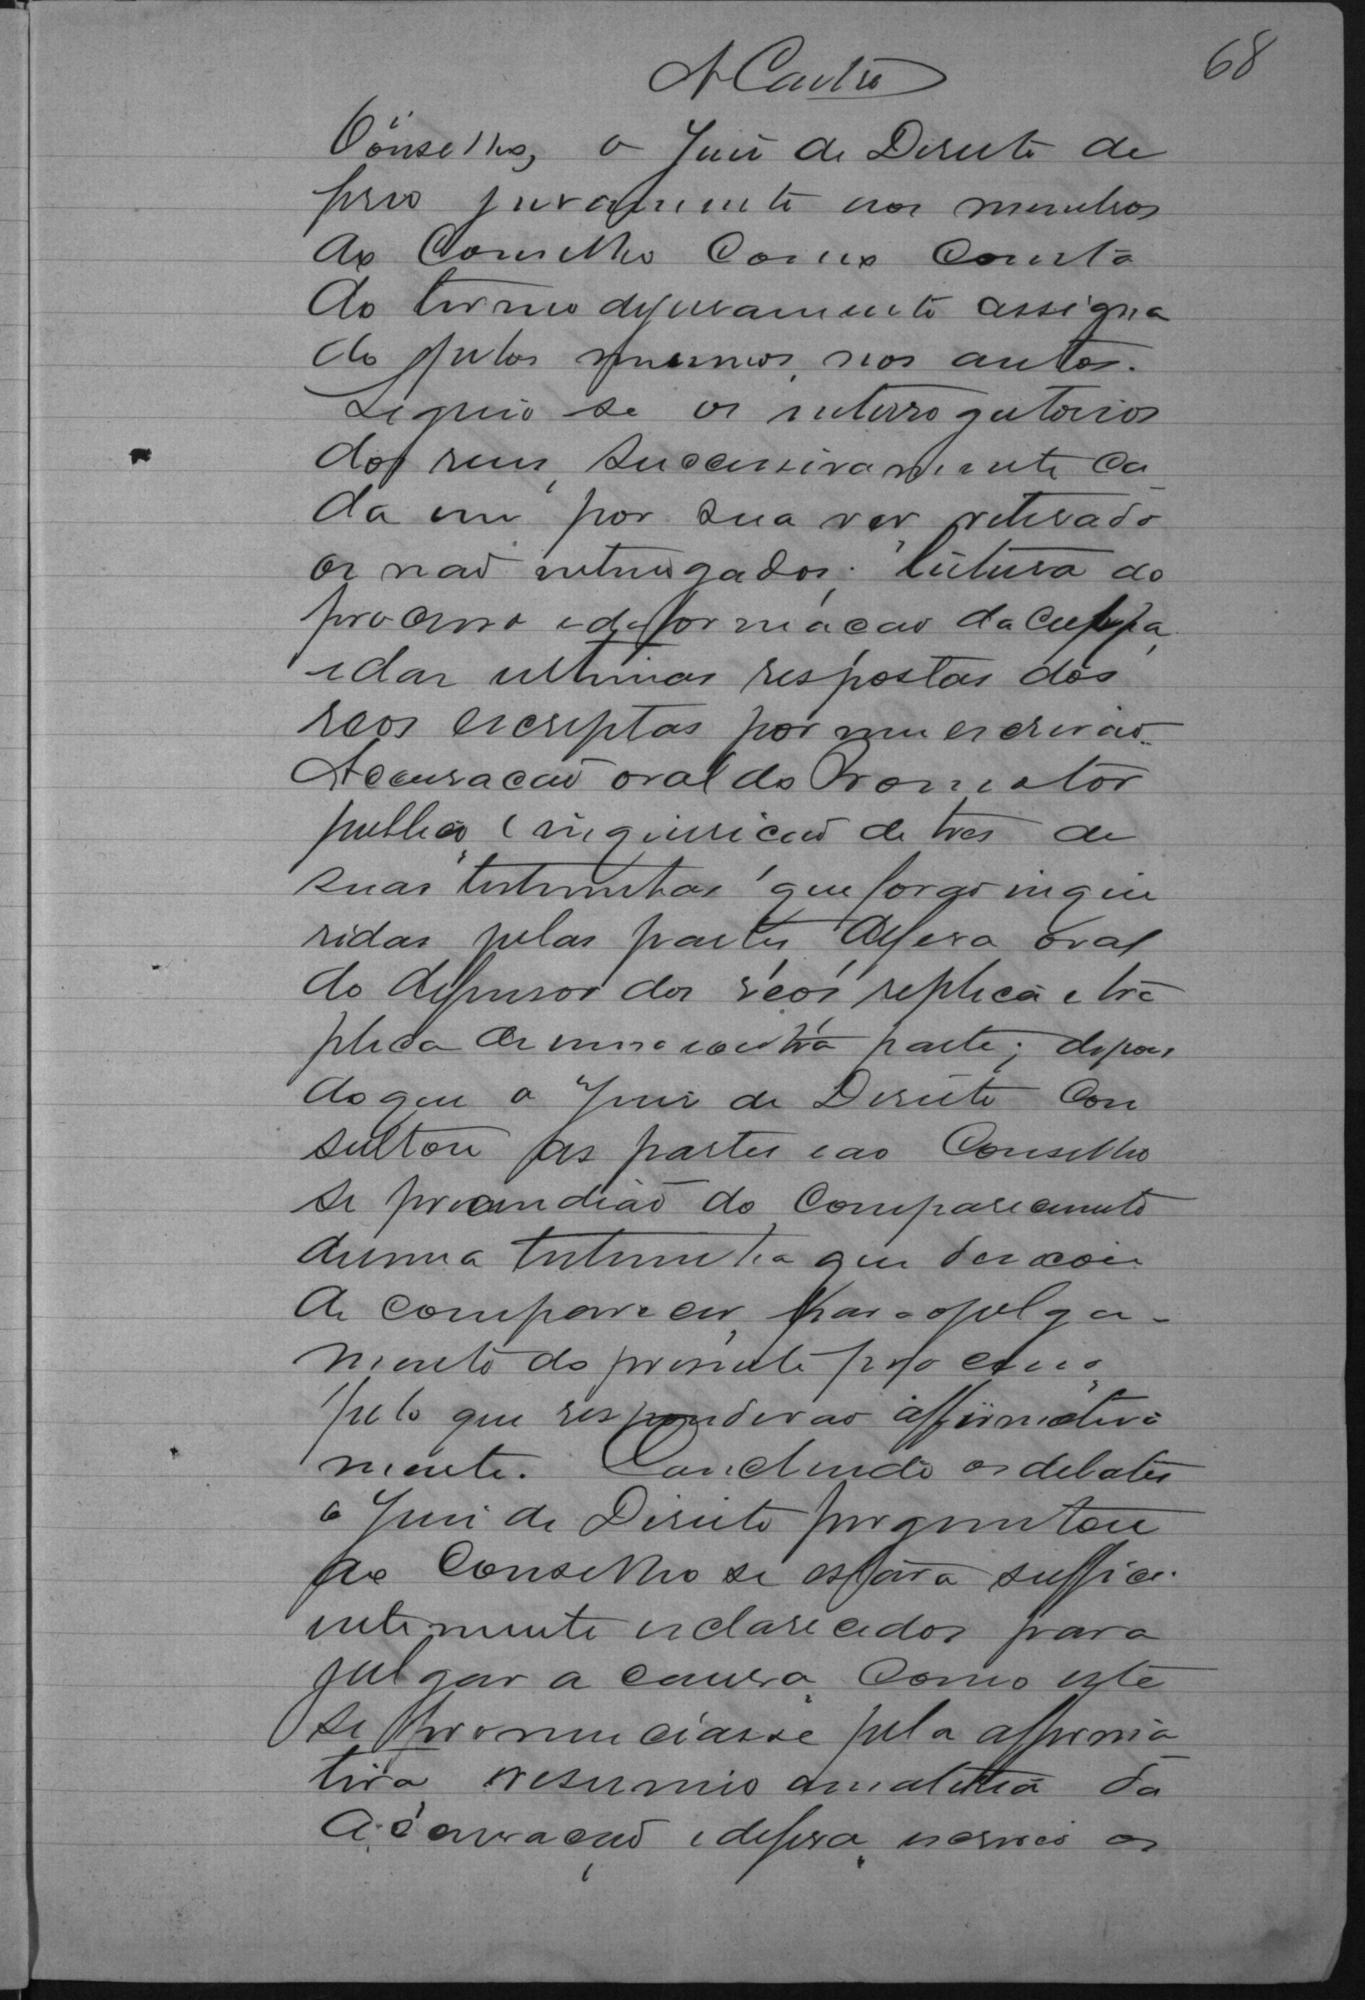 68
A Castro
Conselho, o Juiz de Direito de
ferio juramento aos membros
do Conselho como consta
do termo dejuramento assigna
do pelos mesmos, nos autos.
Seguio se os interrogatorios
dos reus, successivamente ca
da um por sua vez, retirado
os não interrogados; leitura do
processo e da formação da culpa,
e das ultimas respostas dos
reos escriptas por mim escrivão.
Accusação oral do Promotor
publico, inquirição de tres de
suas testemunhas que forão inqui
ridas pelas partes, defesa oral
do defensor dos réos, replica e tre
plica de uma e outra parte; depois
do que o Juiz de Direito con
sultou as partes e ao Conselho
se prescindião do comparecimento
de uma testemunha que deixou
de comparecer, para o julga-
mento do presente processo,
pelo que responderão affirmativa
mente. Concluindo os debates
o Juiz de Direito perguntou
ao Conselho se estava suffici
entemente esclarecidos para
julgar a causa, como este
se pronunciasse pela affirma
tiva, resumio a materia da
accusação e defesa, escreveo os